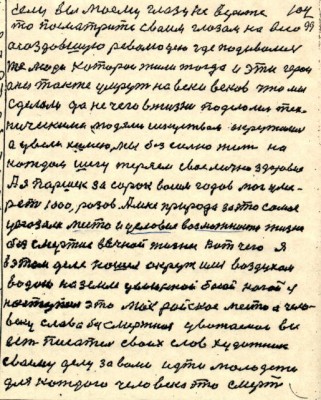 если вы моему глазу не верите 104
то посмотрите своим глазом на
создавшую революцию где подымались
же люди которое жили тогда и эти герои
они также умрут на веки веков что мы
сделали да нечего в жизни подмога тех
ническими людями искуством окружили
а увели химию, мы без силию жить на
каждом шагу теряем свое лично здоровие
А я Паршек за сорок восим годов мог уме
реть 1000, разов. А мне природа за это самое
указала место и условие возможность жизни
без смертия вечной жизни вот чего я
в этом деле нашел окружили воздухом
водою на земле удалённой босой ногой у
это мое райское место а чело
веку слава бессмертная уважаемои вы
есть писатель своих слов художник
своему делу за вами идти молодежи
для каждого человека это смерть